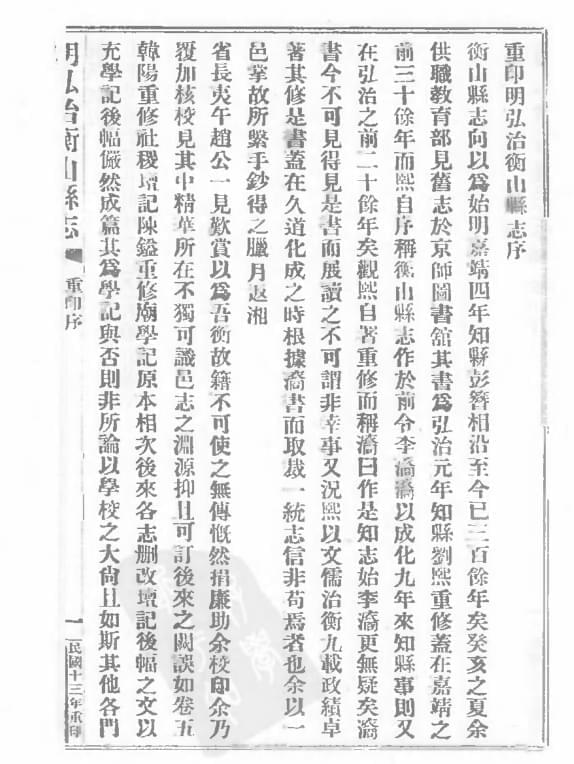 重印明弘治衡山縣志序
衡山縣志向以爲始明嘉靖四年知縣彭簪相沿至今已三百餘年矣癸亥之夏余
供職教育部見舊志於京師圖書舘其書爲弘治元年知縣劉熙重修蓋在嘉靖之
前三十餘年而熙自序稱衡山縣志作於前令李矞矞以成化九年來知縣事則又
在弘治之前二十餘年矣觀熙自署重修而稱矞曰作是知志始李矞更無疑矣矞
書今不可見得見是書而展讀之不可謂非幸事又況熙以文儒治衡九載政績卓
著其修是書蓋在久道化成之時根據矞書而取裁一統志信非苟焉者也余以一
邑掌故所繫手鈔得之臘月返湘
省長夷午趙公一見歎賞以爲吾衡故籍不可使之無傳慨然捐廉助余校印余乃
覆加核校見其中精華所在不獨可識邑志之淵源抑且可訂後來之闕誤如卷五
韓陽重修社稷壇記陳鎰重修廟學記原本相次後來各志删改壇記後幅之文以
充學記後幅儼然成篇其爲學記與否則非所論以學校之大尙且如斯其他各門
明弘治衡山縣志
重印序
一
民國十三年重印